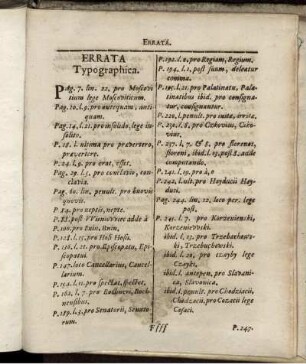 ERRATA.
ERRATA
Typographica.
Pag. 7. lin. 22. pro Moscovi
ticum lege Moscoviticum.
Pag. 10. l. 9. pro antequam, anti-
quam.
Pag. 14. l. 21. pro insolida, lege in-
solito.
P. 18. l. ultima pro prævertero,
prævertere.
P. 24. l. 9. pro erat, esset.
Pag. 29. l. 5. pro conclatio, con-
clavia.
Pag. 60. lin. penult. pro
quovis.
P. 84. pro neptis, nepte.
P. 88. post adde à
P. 100. pro Enim, Unin,
P. 128. l. 15. pro Hosi Hosii.
P. 130. l. 21. pro Episcopata, Epi-
scopatui
P. 147. loco Cancellarius, Cancel-
larium.
P. 152. l. 15. pro spectat, spectet.
P. 162. l. 7. pro Boch-
nensibus.
P. 189. l. 5. pro Senatorii, Senato-
rum.
P. 192. l. 2. pro Regiam, Regium.
P. 194. l. 2. post suam, deleatur
comma.
P. 195. l. 21. pro Palatinatu, Pala-
tinatibus ibid. pro consigna-
tur, consignantur.
P. 220. l. penult. pro invita, irrita.
P. 232. l. 8. pro Czkovius, Cicho-
vius.
P. 237. l. 7. & 8. pro
floreni, ibid. l. 15. post 8. adde
computando.
P. 241. l. 19. pro à, o
P. 242. l. ult. pro Hayducii Hay-
ducti.
Pag. 244. lin. 22. loco per. lege
post.
P. 245. l. 7. pro Karzeniewski,
Korzeniewski.
ibid. l. 15. pro Trzebuchows-
ki, Trzebuchowski.
ibid. l. 20. pro czayby lege
Czayki,
ibid. l. antepen. pro Slavani-
ca, Slavonica.
ibid. l. penult. pro Chodziecii,
Chodzecii, pro Cozatii lege
Cosaci.
Ffff
P. 247.